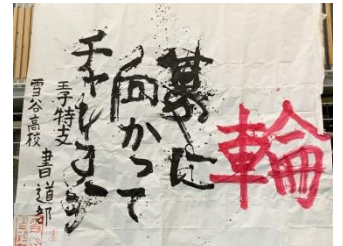 輪
夢に
向かって
チャレンジ
王子特支
雪谷高校
書道部